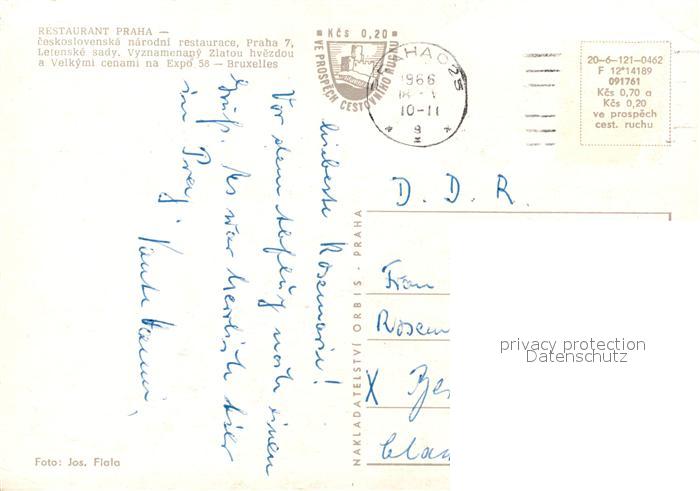 RESTAURANT PRAHA —
československá národní restaurace, Praha 7,
Letenské sady. Vyznamenaný Zlatou hvězdou
a Velkými cenami na Expo 58 — Bruxelles
Kčs 0,20
VE PROSPĚCH CESTOVNÍHO RUCHU
PRAHA 025
1966
10-11
20-6-121-0462
F 12*14189
091761
Kčs 0,70 a
Kčs 0,20
ve prospěch
cest. ruchu
Liebste Rosemarie!
Vor dem Abflug noch einen
Gruß. Es war herrlich hier
in Prag.
Tante
D. D. R.
Frau
Rosem
privacy protection
Datenschutz
NAKLADATELSTVÍ ORBIS - PRAHA
Foto: Jos. Fiala